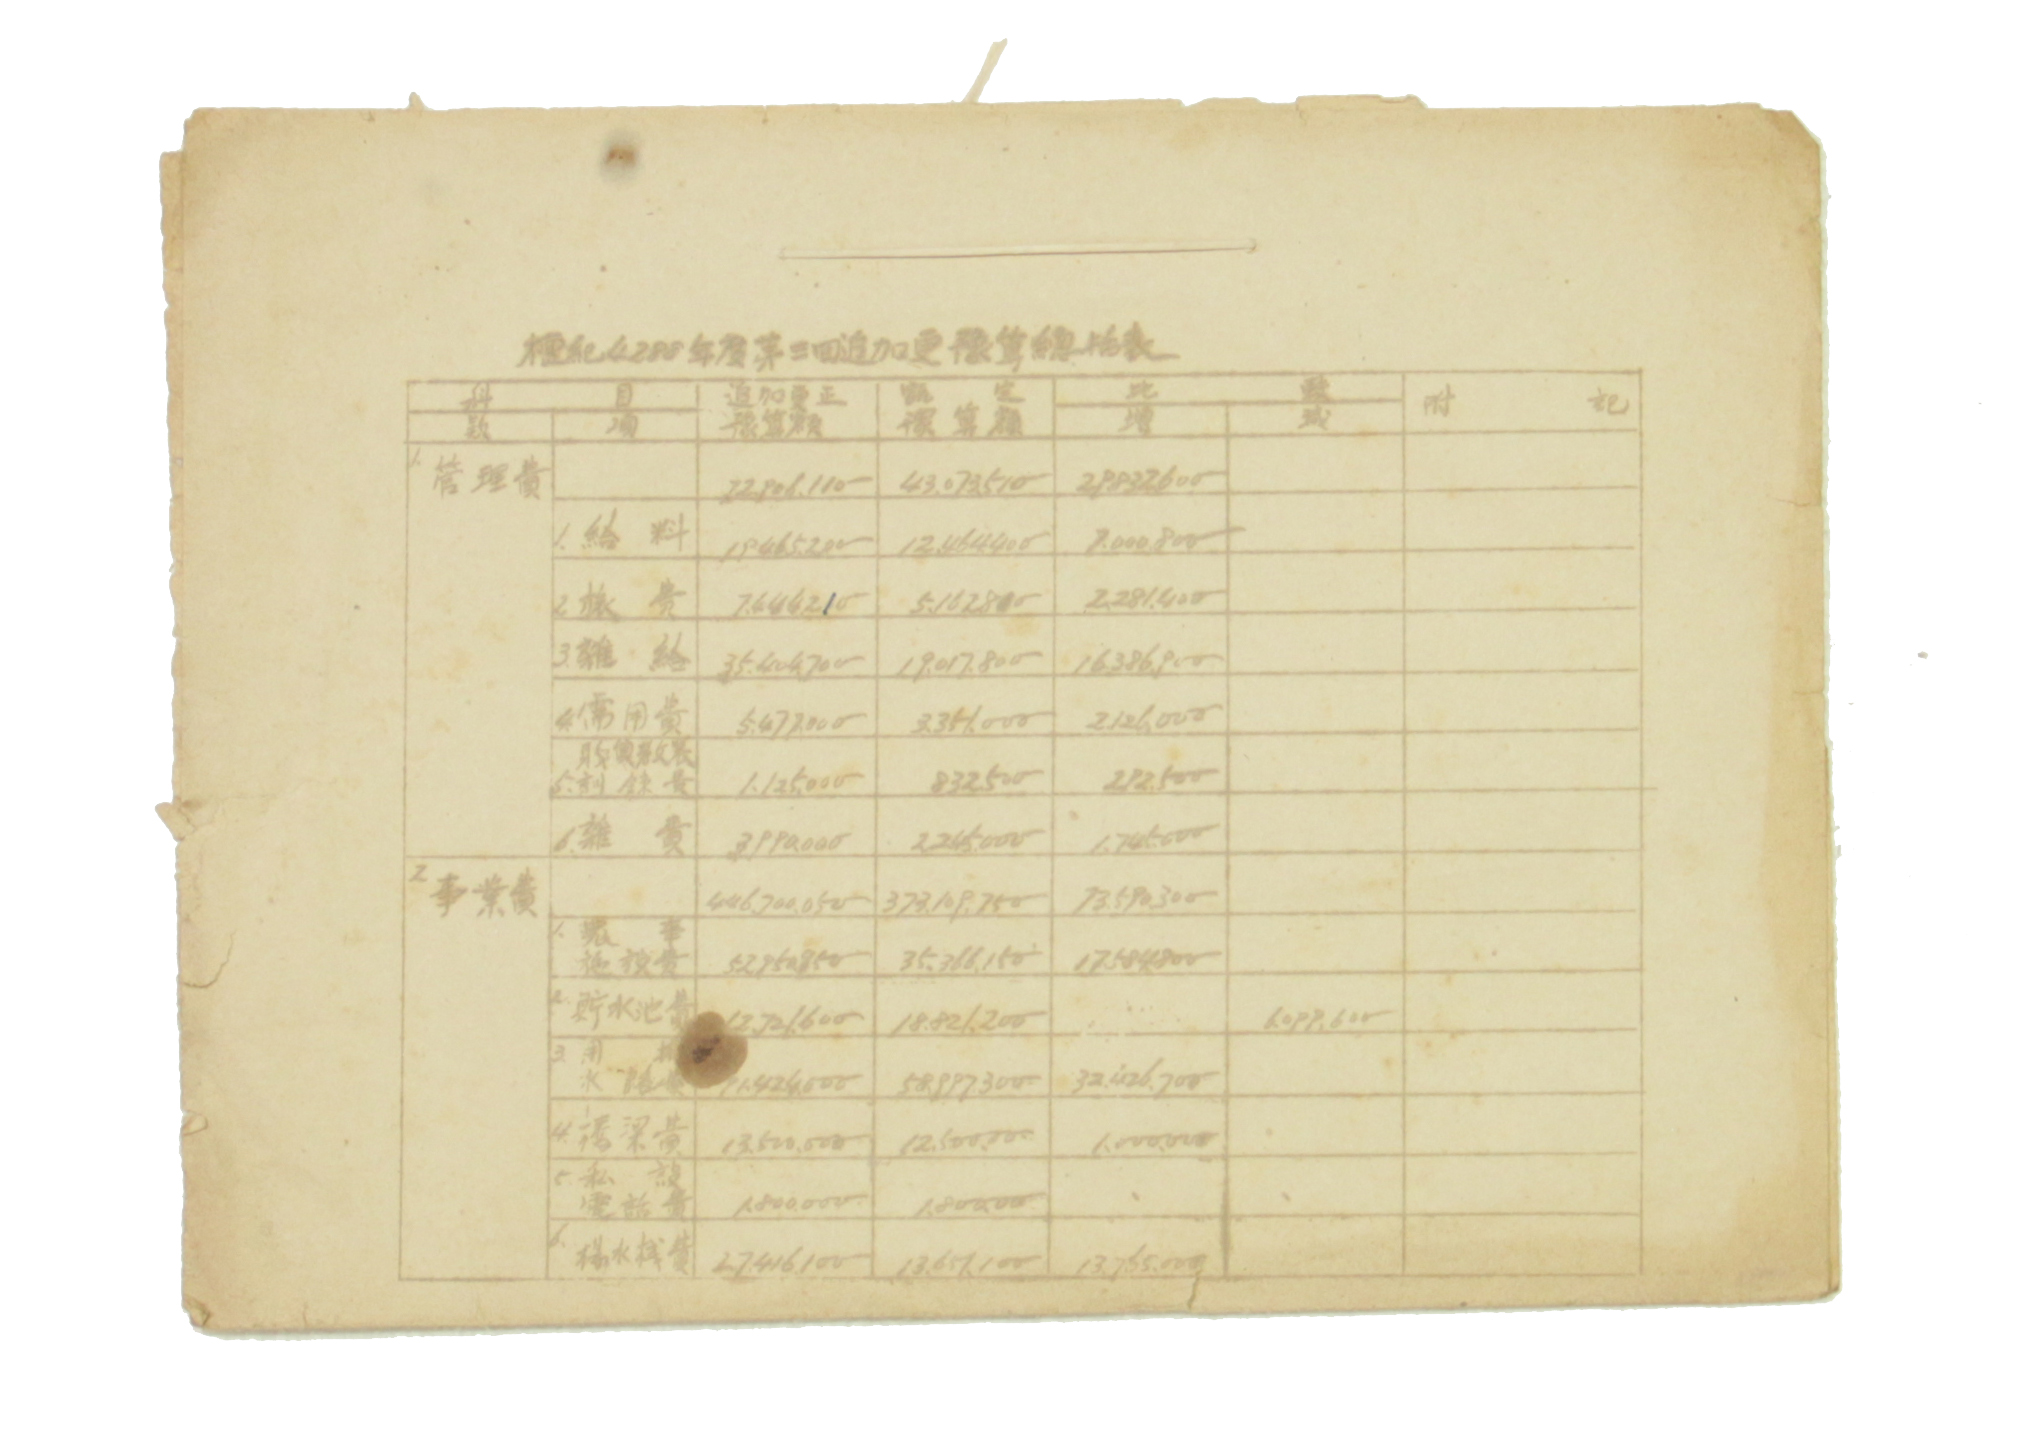 檀紀4288年度第三回追加更予算總括表
科 目 追加更正 豫算額 既定 豫算額 比 較 附 記
款 項 增 減
1. 管理費 72.906.110 43.073.510 29.832.600
1. 給料 19.465.200 12.464.400 7.000.800
2. 旅費 7.444.210 5.162.800 2.281.400
3. 雜給 35.404.700 19.017.800 16.386.900
4. 需用費 5.477.000 3.351.000 2.126.000
5. 1.125.000 832.500 292.500
6. 雜費 3.990.000 2.245.000 1.745.000
2 事業費 446.700.050 373.109.750 73.590.300
1. 施設費 52.950.950 35.366.150 17.584.800
2. 貯水池費 12.721.600 18.821.200 6.099.600
3. 用 水路費 91.424.000 58.997.300 32.426.700
4. 橋梁費 13.500.000 12.500.000 1.000.000
5. 私設 電話費 1.800.000 1.800.000
6. 揚水機費 27.416.100 13.651.100 13.765.000